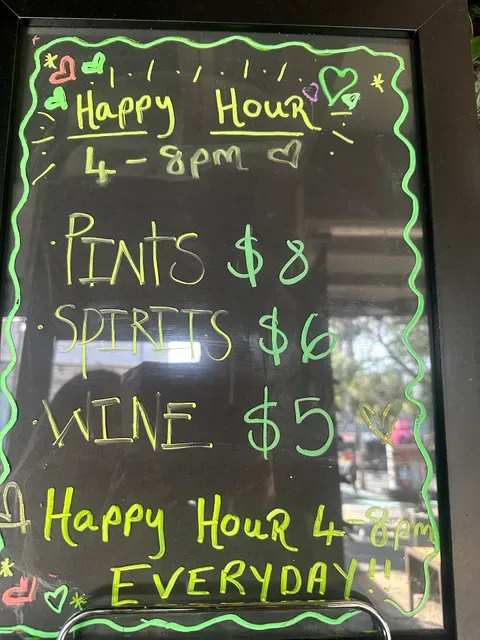 Happy Hour
4-8pm
PINTS $8
SPIRITS $6
WINE $5
Happy Hour 4-8pm
EVERYDAY!!